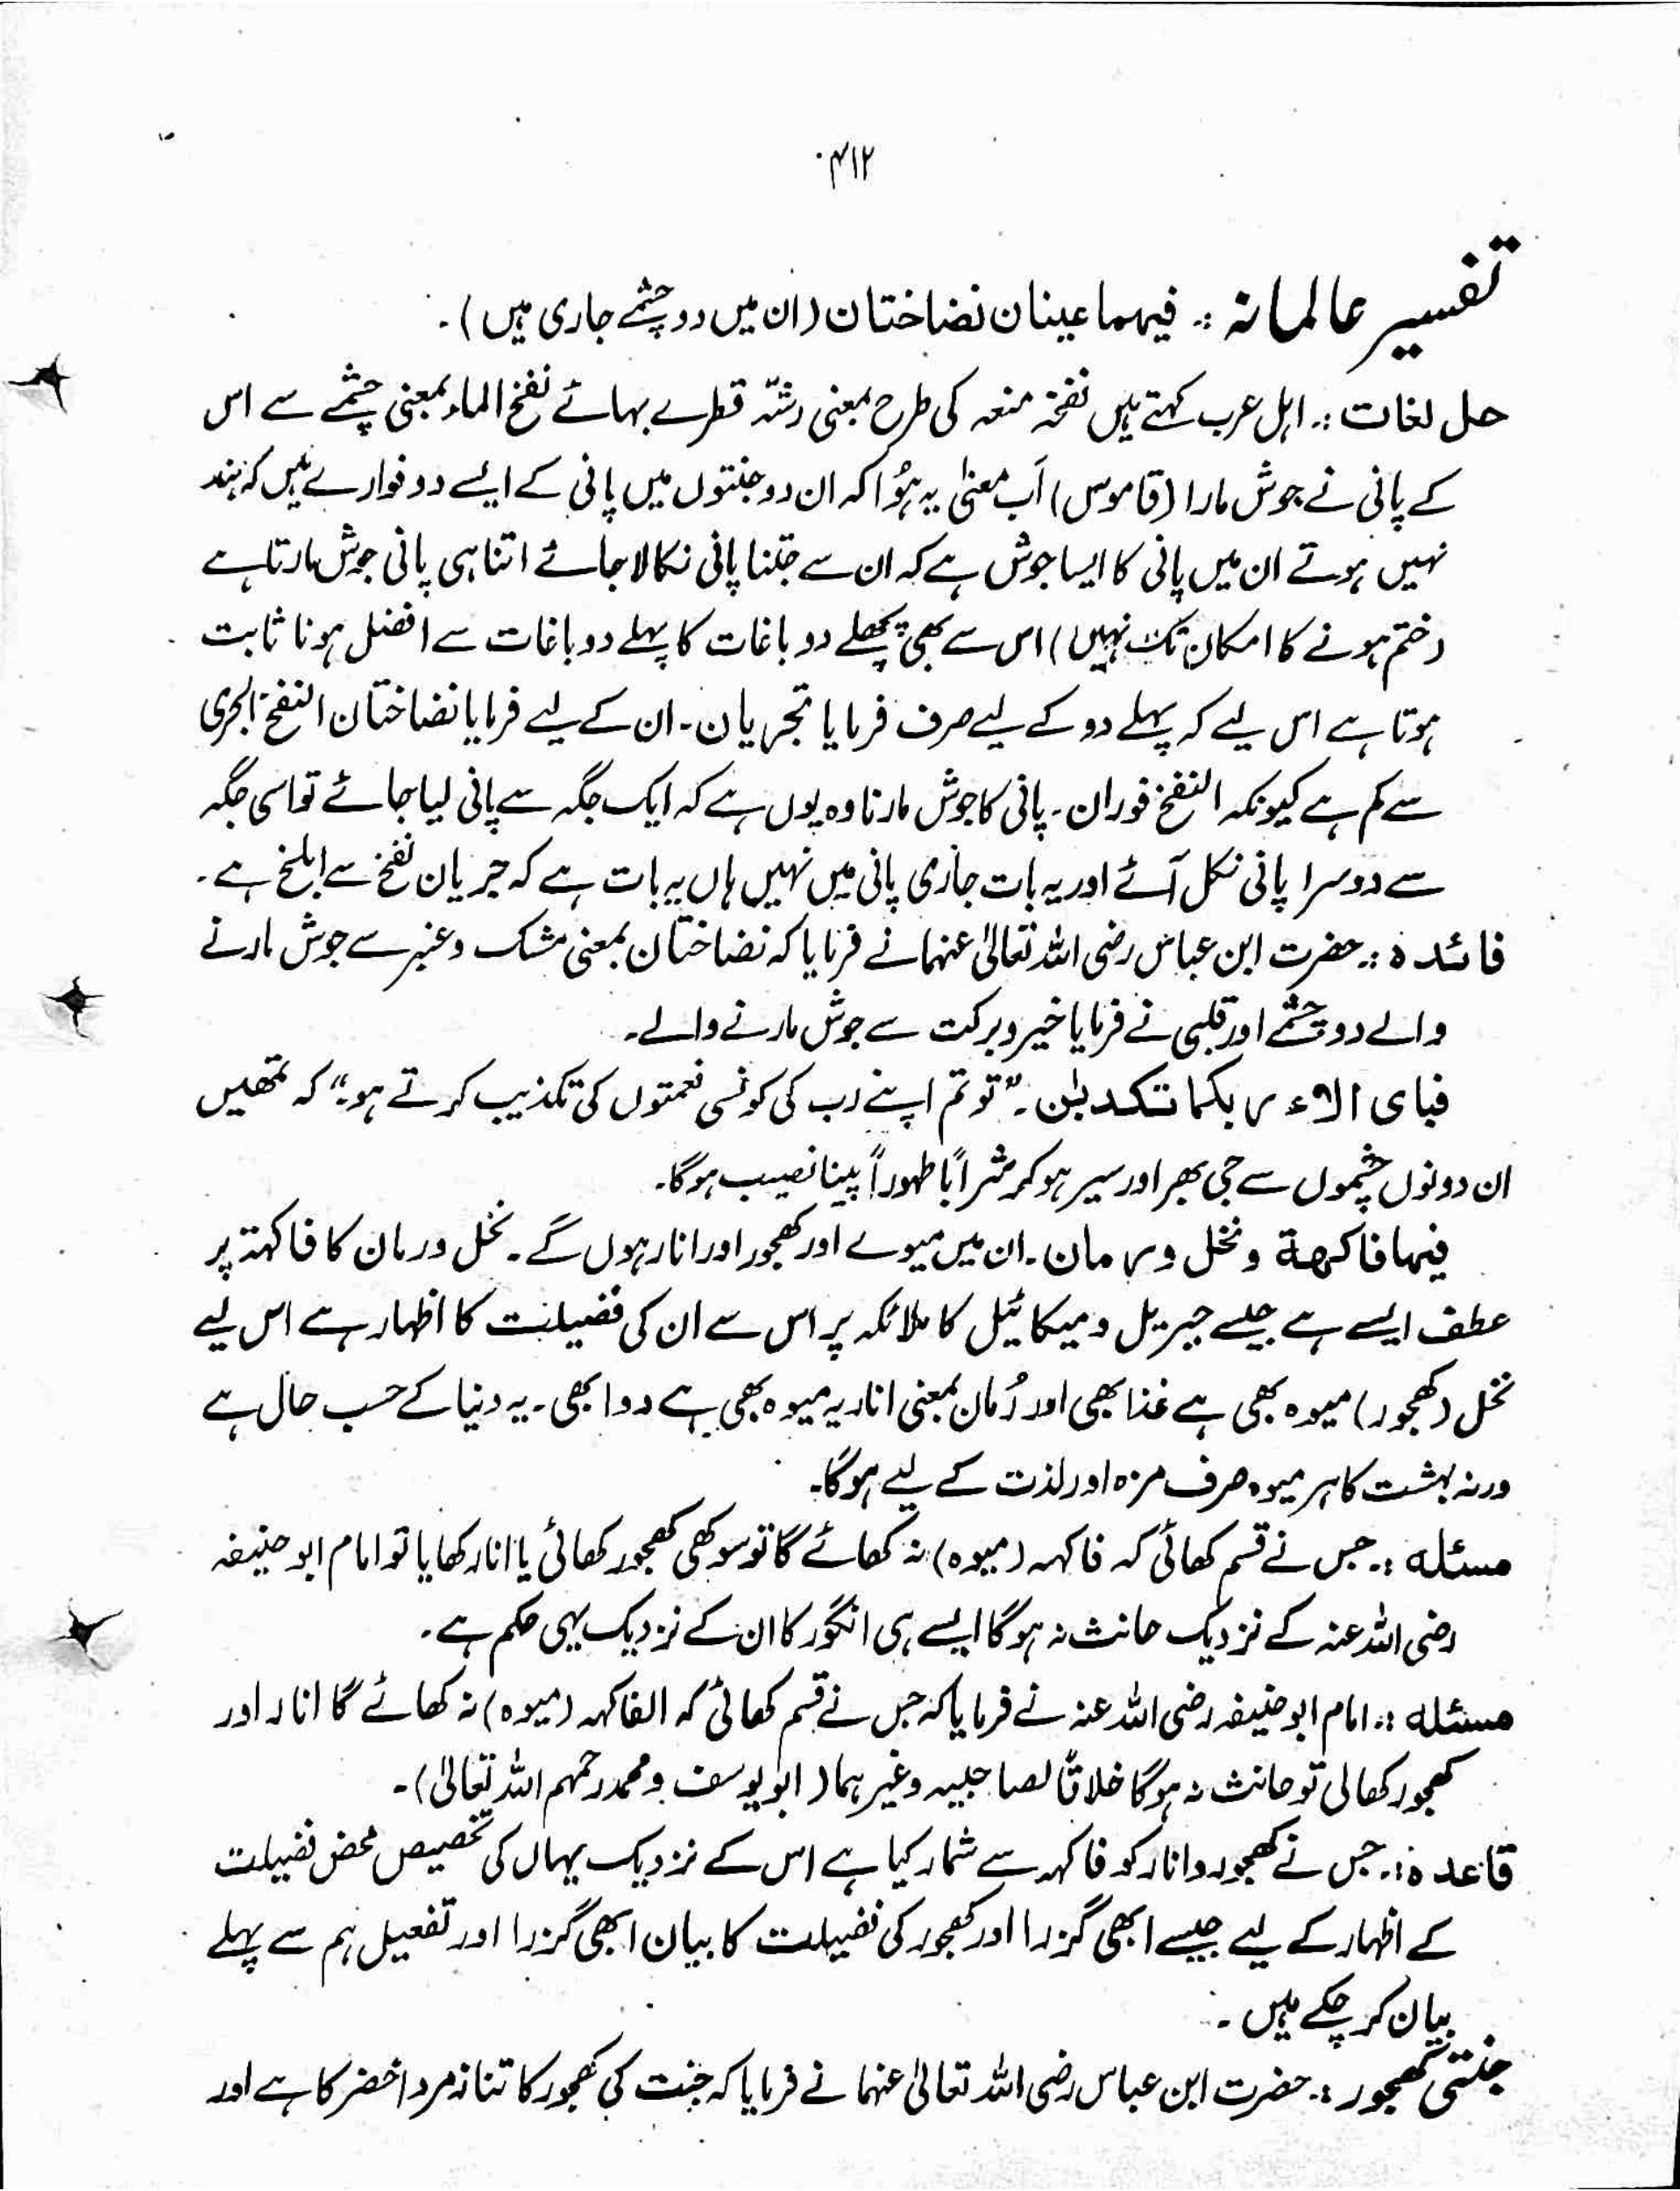 ۴۱۲
تفسیر عالمانہ :۔ فیہما عینان نضاختان (ان میں دو چشمے جاری ہیں)۔
حل لغات :۔ اہل عرب کہتے ہیں نفخہ منعہ کی طرح بمعنی رشہّ قطرے بہائے نفخ الماء بمعنی چشمے سے اس
کے پانی نے جوش مارا (قاموس) اَب معنیٰ یہ ہُوا کہ ان دو جنتوں میں پانی کے ایسے دو فوارے ہیں کہ بند
نہیں ہوتے ان میں پانی کا ایسا جوش ہے کہ ان سے جتنا پانی نکالا جائے اتنا ہی پانی جوش مارتا ہے
(ختم ہونے کا امکان تک نہیں) اس سے بھی پچھلے دو باغات کا پہلے دو باغات سے افضل ہونا ثابت
ہوتا ہے اس لیے کہ پہلے دو کے لیے صرف فرمایا تجریان۔ ان کے لیے فرمایا نضاختان النفخ الجری
سے کم ہے کیونکہ النفخ فوران۔ پانی کا جوش مارنا وہ یوں ہے کہ ایک جگہ سے پانی لیا جائے تو اسی جگہ
سے دوسرا پانی نکل آئے اور یہ بات جاری پانی میں نہیں ہاں یہ بات ہے کہ جریان نفخ سے ابلخ ہے۔
فائدہ :۔ حضرت ابن عباس رضی اللہ تعالیٰ عنہما نے فرمایا کہ نضاختان بمعنی مشک و عنبر سے جوش مارنے
والے دو چشمے اور قلبی نے فرمایا خیر و برکت سے جوش مارنے والے۔
فبای الاء ربکما تکذبٰن۔ "تو تم اپنے رب کی کونسی نعمتوں کی تکذیب کرتے ہو" کہ تمھیں
ان دونوں چشموں سے جی بھر اور سیر ہو کر شراباً طہوراً پینا نصیب ہوگا۔
فیہا فاکھة و نخل و رمان۔ ان میں میوے اور کھجور اور انار ہوں گے۔ نخل و رمان کا فاکہۃ پر
عطف ایسے ہے جیسے جبریل و میکائیل کا ملائکہ پر اس سے ان کی فضیلت کا اظہار ہے اس لیے
نخل (کھجور) میوہ بھی ہے غذا بھی اور رُمان بمعنی انار یہ میوہ بھی ہے دوا بھی۔ یہ دنیا کے حسب حال ہے
ورنہ بہشت کا ہر میوہ صرف مزہ اور لذت کے لیے ہوگا۔
مسئلہ :۔ جس نے قسم کھائی کہ فاکہہ (میوہ) نہ کھائے گا تو سوکھی کھجور کھائی یا انار کھایا تو امام ابو حنیفہ
رضی اللہ عنہ کے نزدیک حانث نہ ہوگا ایسے ہی انگور کا ان کے نزدیک یہی حکم ہے۔
مسئلہ :۔ امام ابو حنیفہ رضی اللہ عنہ نے فرمایا کہ جس نے قسم کھائی کہ الفاکہہ (میوہ) نہ کھائے گا انار اور
کھجور کھالی تو حانث نہ ہوگا خلافًا لصاحبیہ وغیرہما (ابو یوسف و محمد رحمہم اللہ تعالیٰ)۔
قاعدہ :۔ جس نے کھجور و انار کو فاکہہ سے شمار کیا ہے اس کے نزدیک یہاں کی تخصیص محض فضیلت
کے اظہار کے لیے جیسے ابھی گزرا اور کھجور کی فضیلت کا بیان ابھی گزرا اور تفعیل ہم سے پہلے
بیان کر چکے ہیں۔
جنتی کھجور :۔ حضرت ابن عباس رضی اللہ تعالیٰ عنہما نے فرمایا کہ جنت کی کھجور کا تنا زمرد اخضر کا ہے اور